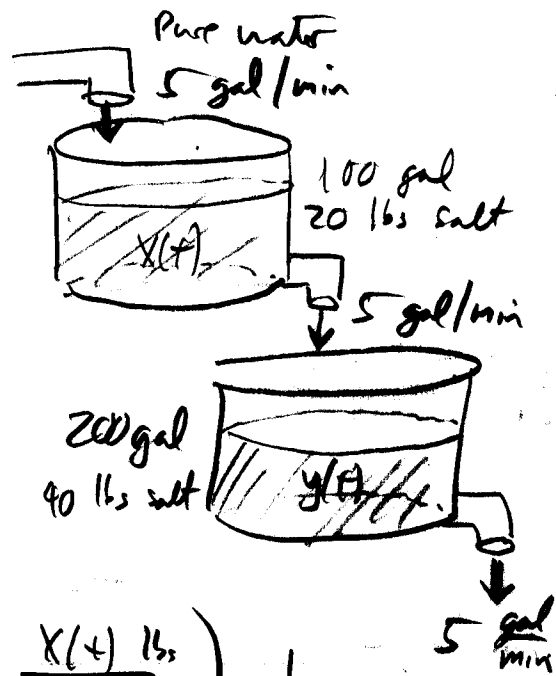 Pure water
5 gal/min
100 gal
20 lbs salt
X(t)
5 gal/min
200 gal
40 lbs salt
y(t)
5 gal/min
X(t) lbs